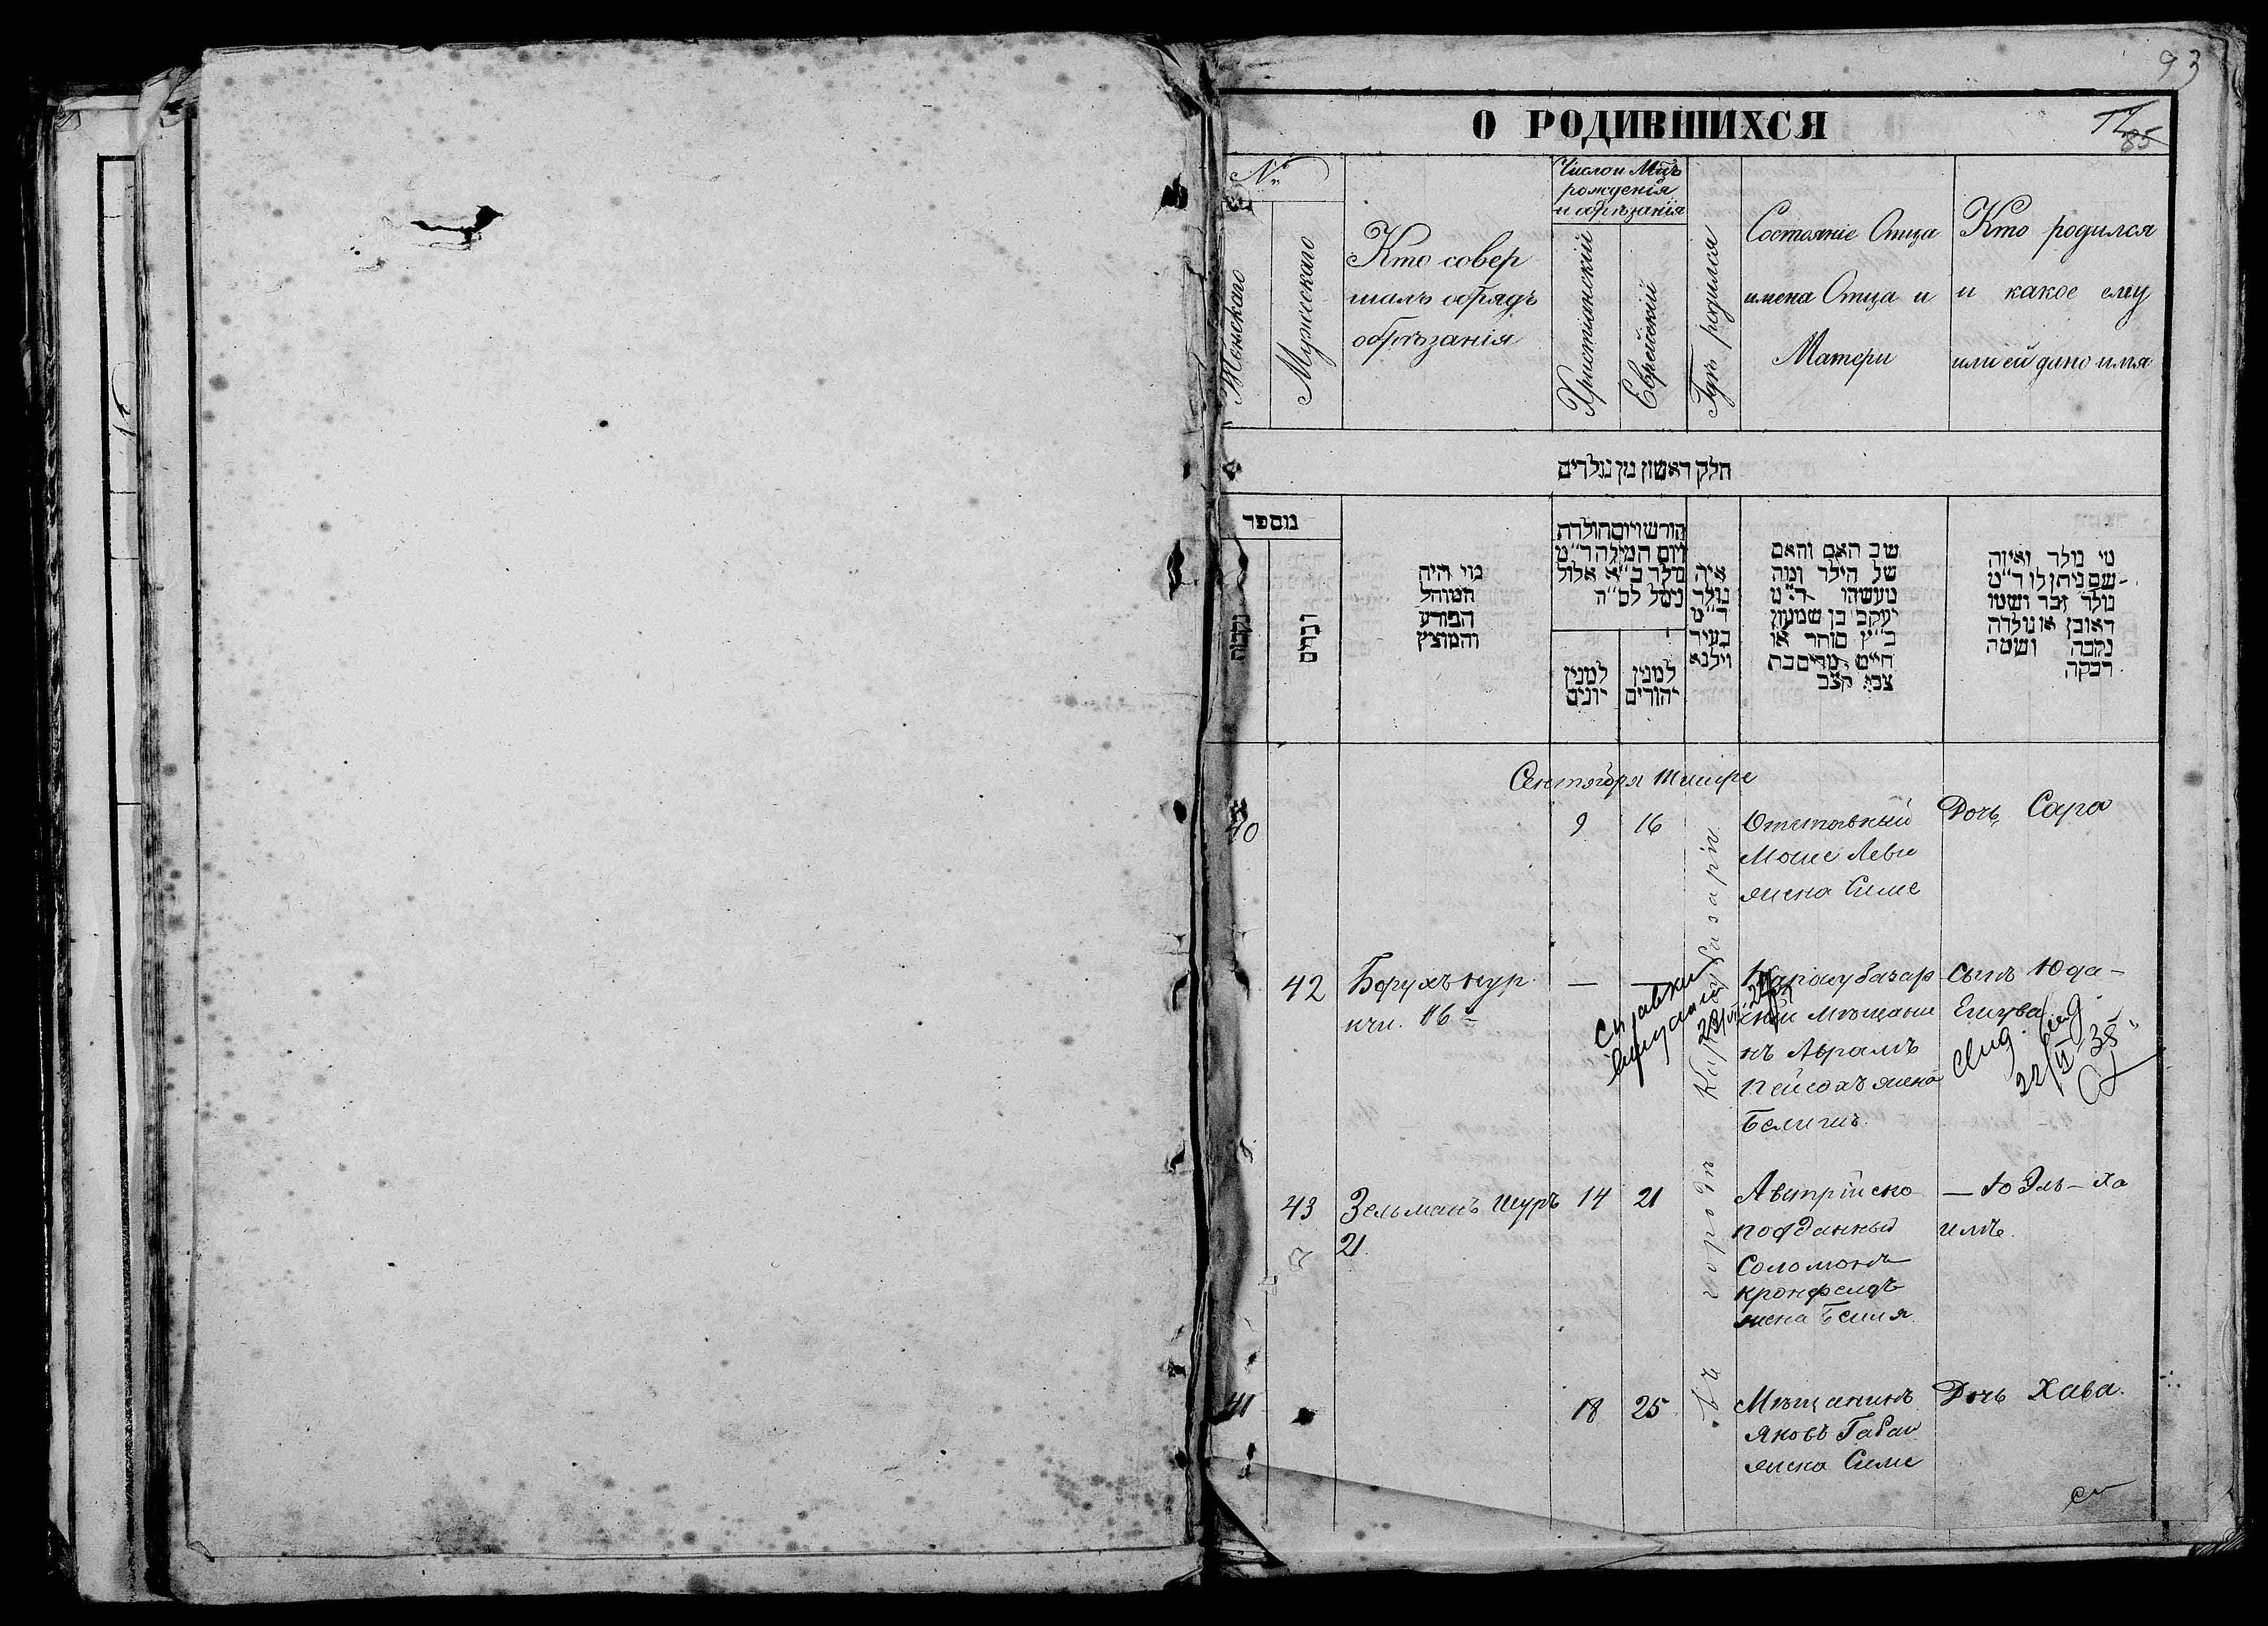 93
О РОДИВШИХСЯ
85
№
Женскаго
Мужескаго
Кто совер
шалъ обрядъ
обрѣзанія
Число и Мцъ
рожденія
и обрѣзанія
Христіанскій
Еврейскій
Гдѣ родился
Состояніе Отца
имена Отца и
Матери
Кто родился
и какое ему
или ей дано имя
חלק ראשון מן נולדים
מספר
נקבות
זכרים
מוי היה
המוהל
הפורע
והמוצץ
חודש ויום הולדת
ויום המילה ד"מ
נולד כ"א אלול
נימל לס"ה
למנין
יונים
למנין
יהודים
איה
נולד
ד"מ
בעיר
וילנא
שב האם והאם
של הילד ומה
מעשהו ד"מ
יעקב בן שמעון
כ"ץ סוחר או
חייט מרים בת
צבי קצב
מי נולד ואיזה
שם ניתן לו ד"מ
נולד זכר ושמו
ראובן או נולדה
נקבה ושמה
רבקה
Сентября тишре
40
9
16
Отставный
Моше Леви
жена Симе
Дочь Сара
42
Борухъ кур
— —
Карасубазар
скій мѣщани
нъ Абрамъ
Пейсахъ жена
Сынъ Юда-
Ешува
Справки
Въ городѣ Карасубазарѣ
43
Зельманъ Шуръ
21.
14
21
Австрійско
подданный
Соломонъ
Кронфелдъ
жена Бейля
— Юэль-Ха
имъ.
41
18
25
Мѣщанинъ
Яковъ Габай
жена Симе
Дочь Хава.